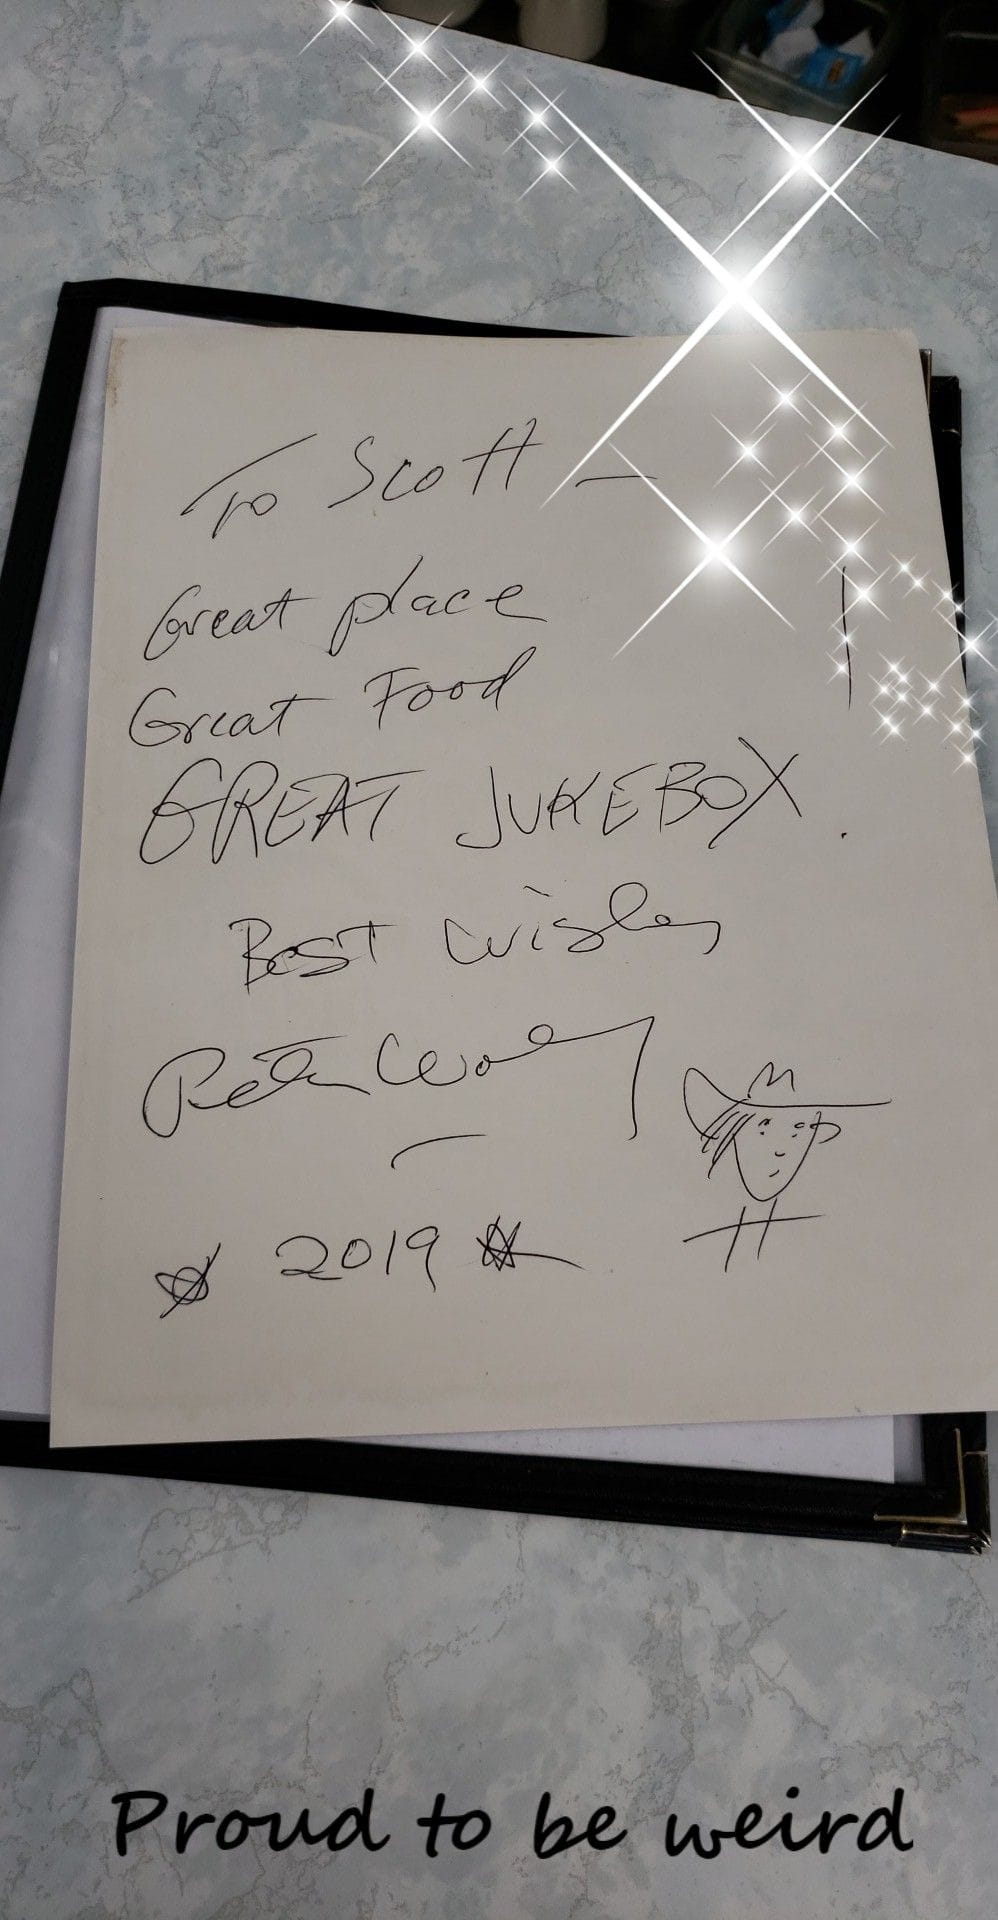 To Scott —
Great place
Great Food
GREAT JUKEBOX!
Best wishes
Peter Wolf
2019
Proud to be weird